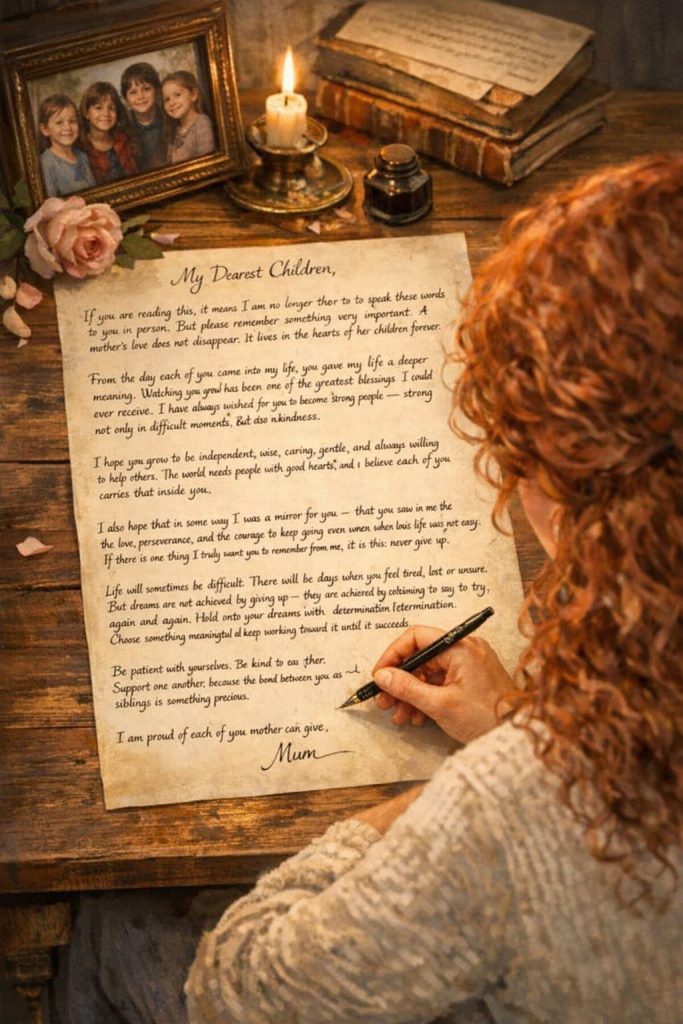 My Dearest Children,
If you are reading this, it means I am no longer ther to to speak these words
to you in person. But please remember something very important. A
mother's love does not disappear. It lives in the hearts of her children forever.
From the day each of you came into my life, you gave my life a deeper
meaning. Watching you grow has been one of the greatest blessings I could
ever receive. I have always wished for you to become strong people — strong
not only in difficult moments, But also kindness.
I hope you grow to be independent, wise, caring, gentle, and always willing
to help others. The world needs people with good hearts, and I believe each of you
carries that inside you.
I also hope that in some way I was a mirror for you — that you saw in me the
the love, perseverance, and the courage to keep going even when life was not easy.
If there is one thing I truly want you to remember from me, it is this: never give up.
Life will sometimes be difficult. There will be days when you feel tired, lost or unsure.
But dreams are not achieved by giving up — they are achieved by to say to try,
again and again. Hold onto your dreams with determination
Choose something meaningful keep working toward it until it succeeds.
Be patient with yourselves. Be kind to
Support one another, because the bond between you as
siblings is something precious.
I am proud of each of you mother can give,
Mum